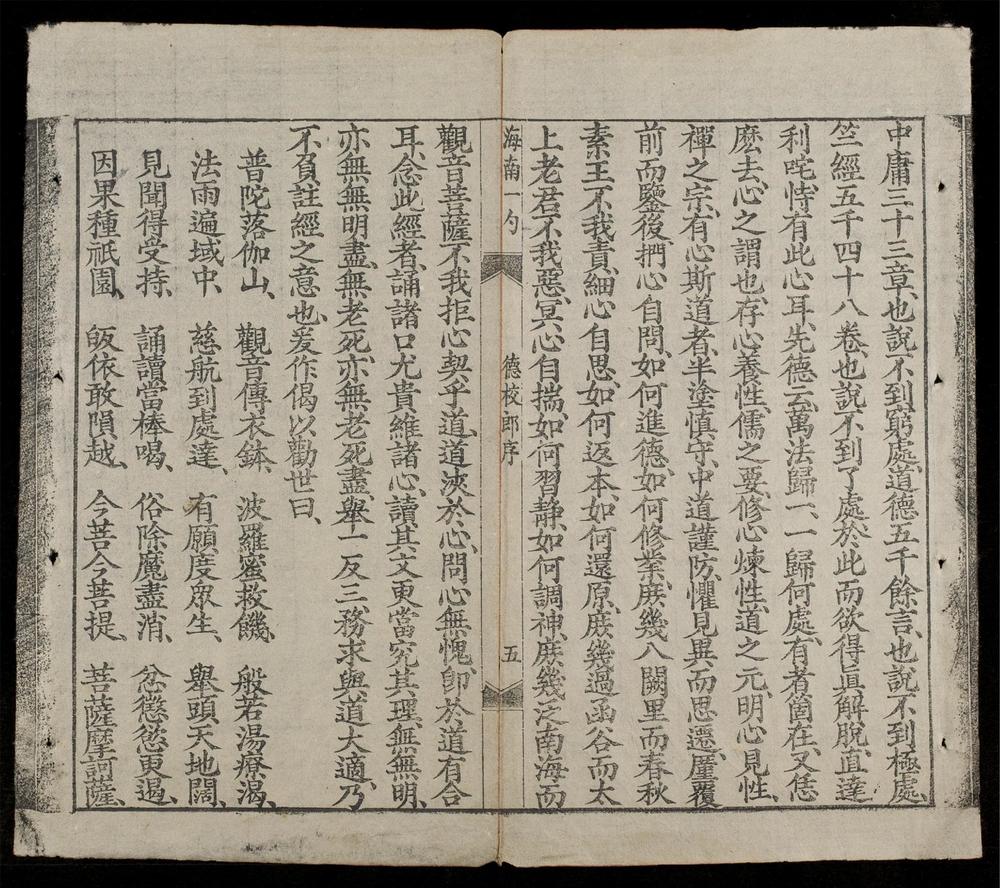 中庸三十三章、也說不到窮處、道德五千餘言、也說不到極處、
竺經五千四十八卷、也說不到了處、於此而欲得眞解脫、直達
利咜、恃有此心耳、先德云、萬法歸一、一歸何處、有者箇在、又恁
麽去、心之謂也、存心養性、儒之要、修心煉性、道之元、明心見性、
禪之宗、有心斯道者、半塗慎守、中道謹防、懼見異、而思遷、屢覆
前而鑒後、捫心自問、如何進德、如何修業、庶幾入闕里而春秋
素王不我責、細心自思、如何返本、如何還原、庶幾過函谷而太
上老君不我惡、冥心自揣、如何習静、如何調神、庶幾之南海而
海南一勺
德校郎序
五
觀音菩薩不我拒、心契乎道、道浹於心、問心無愧、卽於道有合
耳、念此經者、誦諸口尤貴維諸心、讀其文更當究其理、無無明、
亦無無明盡、無老死、亦無老死盡、舉一反三、務求與道大適、乃
不負註經之意也、爰作偈以勸世曰、
普陀落伽山、 觀音傳衣鉢、 波羅蜜救饑、 般若湯療渴、
法雨遍域中、 慈航到處達、 有願度眾生、 舉頭天地闊、
見聞得受持、 誦讀當棒喝、 俗除魔盡消、 忿懲慾更遏、
因果種祇園、 皈依敢隕越、 今菩今菩提、 菩薩摩訶薩、